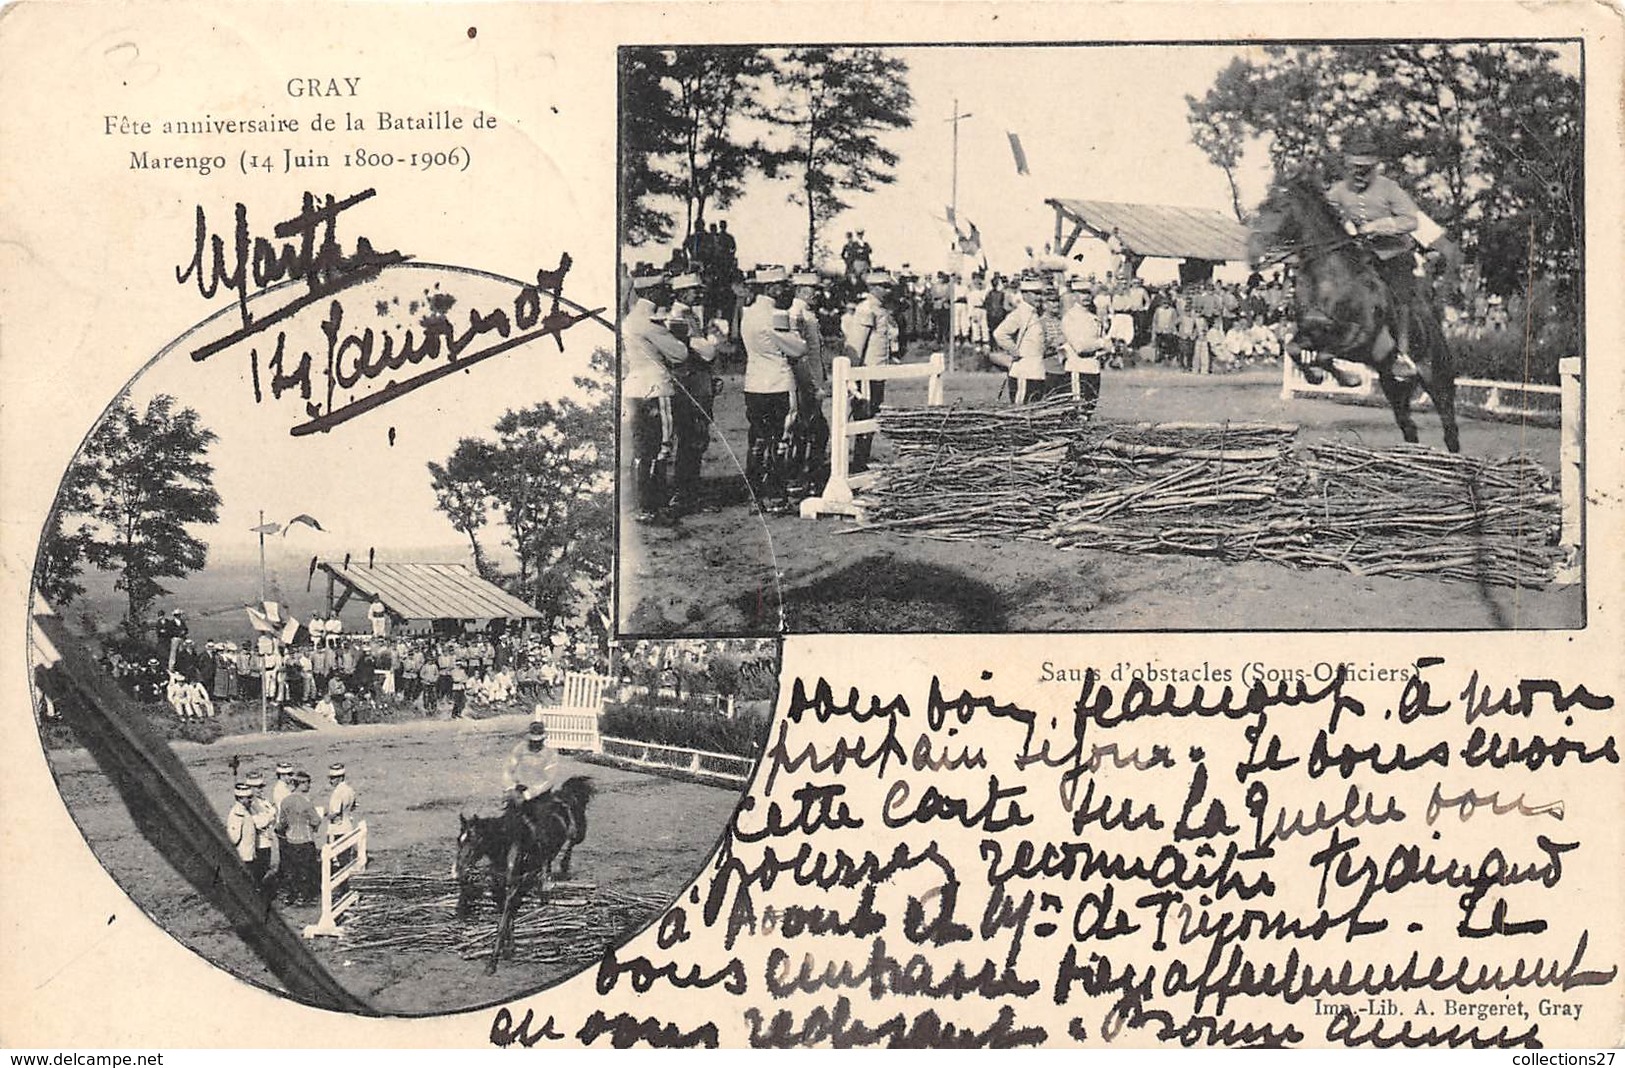 GRAY
Fête anniversaire de la Bataille de
Marengo (14 Juin 1800-1906)
Marthe
14 Janvier 07
Sauts d'obstacles (Sous-Officiers)
vous voir beaucoup à mon
prochain séjour. Je vous envoie
cette carte sur laquelle vous
pourrez reconnaître Ferdinand
à droite et Mr de Trigomot. Je
vous embrasse bien affectueusement
en vous redisant. Bonne année
Imp.-Lib. A. Bergeret, Gray
collections27